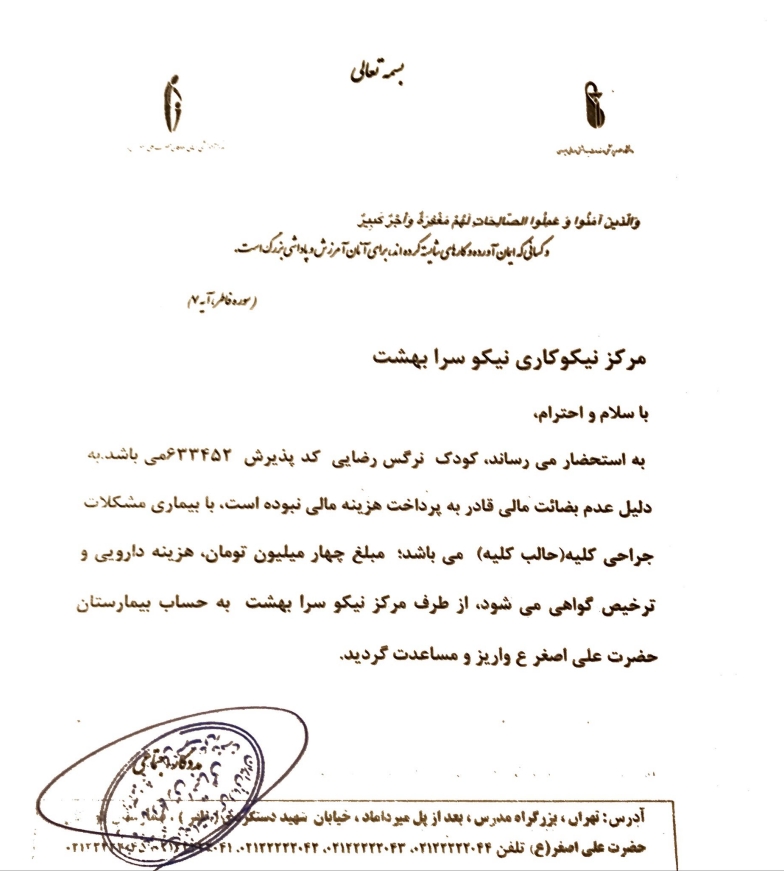 بسمه تعالی
وَالَّذینَ آمَنُوا وَ عَمِلُوا الصَّالِحَاتِ لَهُمْ مَغْفِرَةٌ وَأَجْرٌ كَبِیرٌ
و کسانی که ایمان آورده و کارهای شایسته کرده اند، برای آنان آمرزش و پاداشی بزرگ است.
(سوره فاطر، آیه ۷)
مرکز نیکوکاری نیکو سرا بهشت
با سلام و احترام،
به استحضار می رساند، کودک نرگس رضایی کد پذیرش ۶۳۳۴۵۲می باشد.به
دلیل عدم بضائت مالی قادر به پرداخت هزینه مالی نبوده است، با بیماری مشکلات
جراحی کلیه(حالب کلیه) می باشد؛ مبلغ چهار میلیون تومان، هزینه دارویی و
ترخیص گواهی می شود، از طرف مرکز نیکو سرا بهشت به حساب بیمارستان
حضرت علی اصغر ع واریز و مساعدت گردید.
مددکار اجتماعی
آدرس: تهران ، بزرگراه مدرس ، بعد از پل میرداماد ، خیابان شهید دستگردی (ظفر) ،
حضرت علی اصغر(ع) تلفن ۰۲۱۲۲۲۲۲۰۴۴، ۰۲۱۲۲۲۲۲۰۴۳، ۰۲۱۲۲۲۲۲۰۴۲